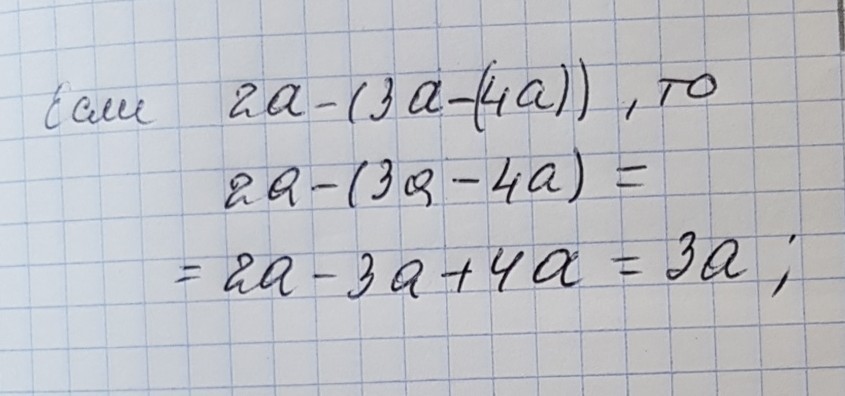 Если 2a-(3a-(4a)), то
2a-(3a-4a) =
= 2a-3a+4a = 3a;